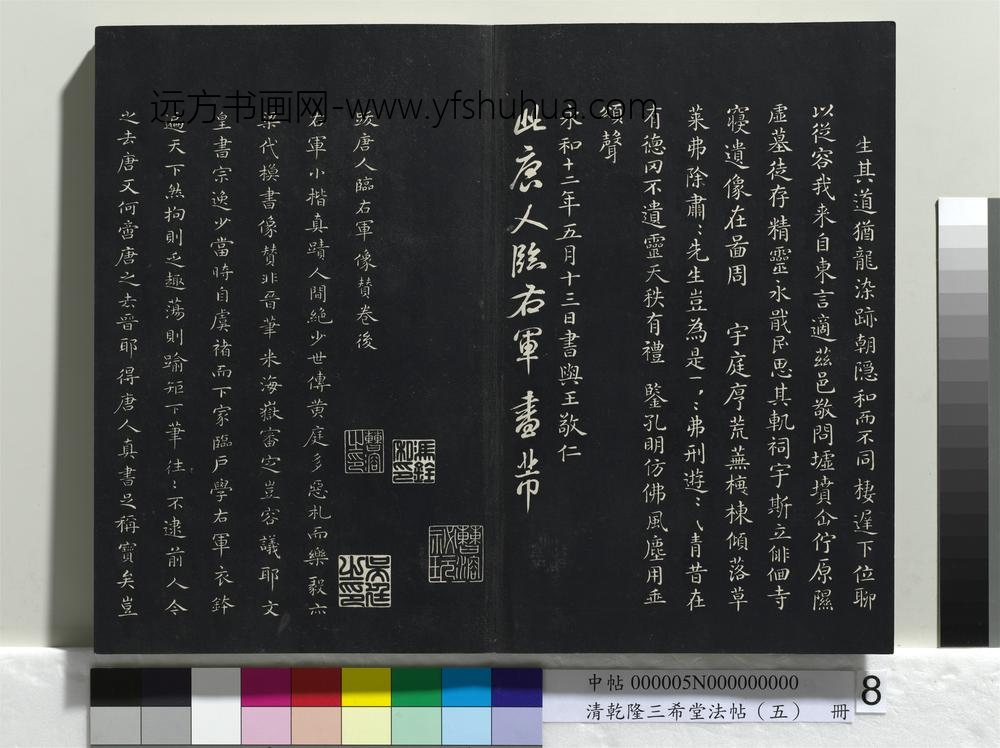 远方书画网-www.yfshuhua.com
生其道猶龍染跡朝隱和而不同棲遲下位聊
以從容我来自東言適茲邑敬問墟墳企佇原隰
虛墓徒存精靈永戢民思其軌祠宇斯立俳佪寺
寢遺像在啚周 宇庭序荒蕪榱棟傾落草
莱弗除肅〻先生豈為是一〻弗刑遊〻〵青昔在
有德罔不遺靈天秩有禮 鑒孔明仿佛風塵用垂
頌聲
永和十二年五月十三日書與王敬仁
此唐人臨右軍畫帋
跋唐人臨右軍像贊卷後
右軍小揩真蹟人間絶少世傳黄庭多惡札而樂毅亦
梁代模書像贊非晉筆米海嶽審定豈容議耶文
皇書宗逸少當時自虞褚而下家臨戶學右軍衣鉢
遍天下然拘則乏趣蕩則踰矩下筆往〻不逮前人今
之去唐又何啻唐之去晉耶得唐人真書足稱寶矣豈
曹溶之印
馮銓私印
曹溶秘玩
中帖 000005N000000000
清乾隆三希堂法帖（五） 冊
8